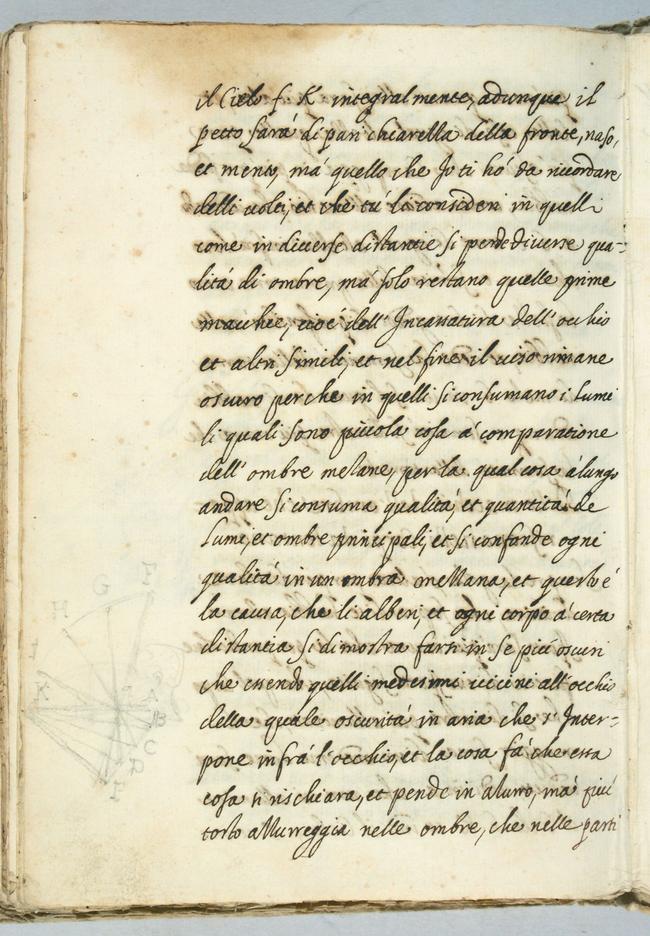 il Cielo f. K integralmente, adunque il
petto sarà di pari chiarezza della fronte, naso,
et mento, mà quello che Io ti hò da ricordare
delli volti, et che tù li consideri in quelli
come in diverse distantie si perde diverse qua=
lità di ombre, mà solo restano quelle prime
macchie, cioè dell' Incassatura dell' occhio
et altri simili, et nel fine il viso rimane
oscuro perche in quelli si consumano i Lumi
li quali sono piccola cosa à comparatione
dell' ombre mezane, per la qual cosa à lungo
andare si consuma qualità, et quantità de
Lumi, et ombre principali, et si confonde ogni
qualità in un ombra mezzana, et quest' è
la causa, che li alberi, et ogni corpo à certa
distantia si dimostra farsi in se più oscuri
che essendo quelli medesimi vicini all' occhio
della quale oscurità in aria che s' Inter=
pone infrà l' occhio, et la cosa fà che essa
cosa si rischiara, et pende in azurro, mà più
tosto azzurreggia nelle ombre, che nelle parti
G
H
K
A
B
C
D